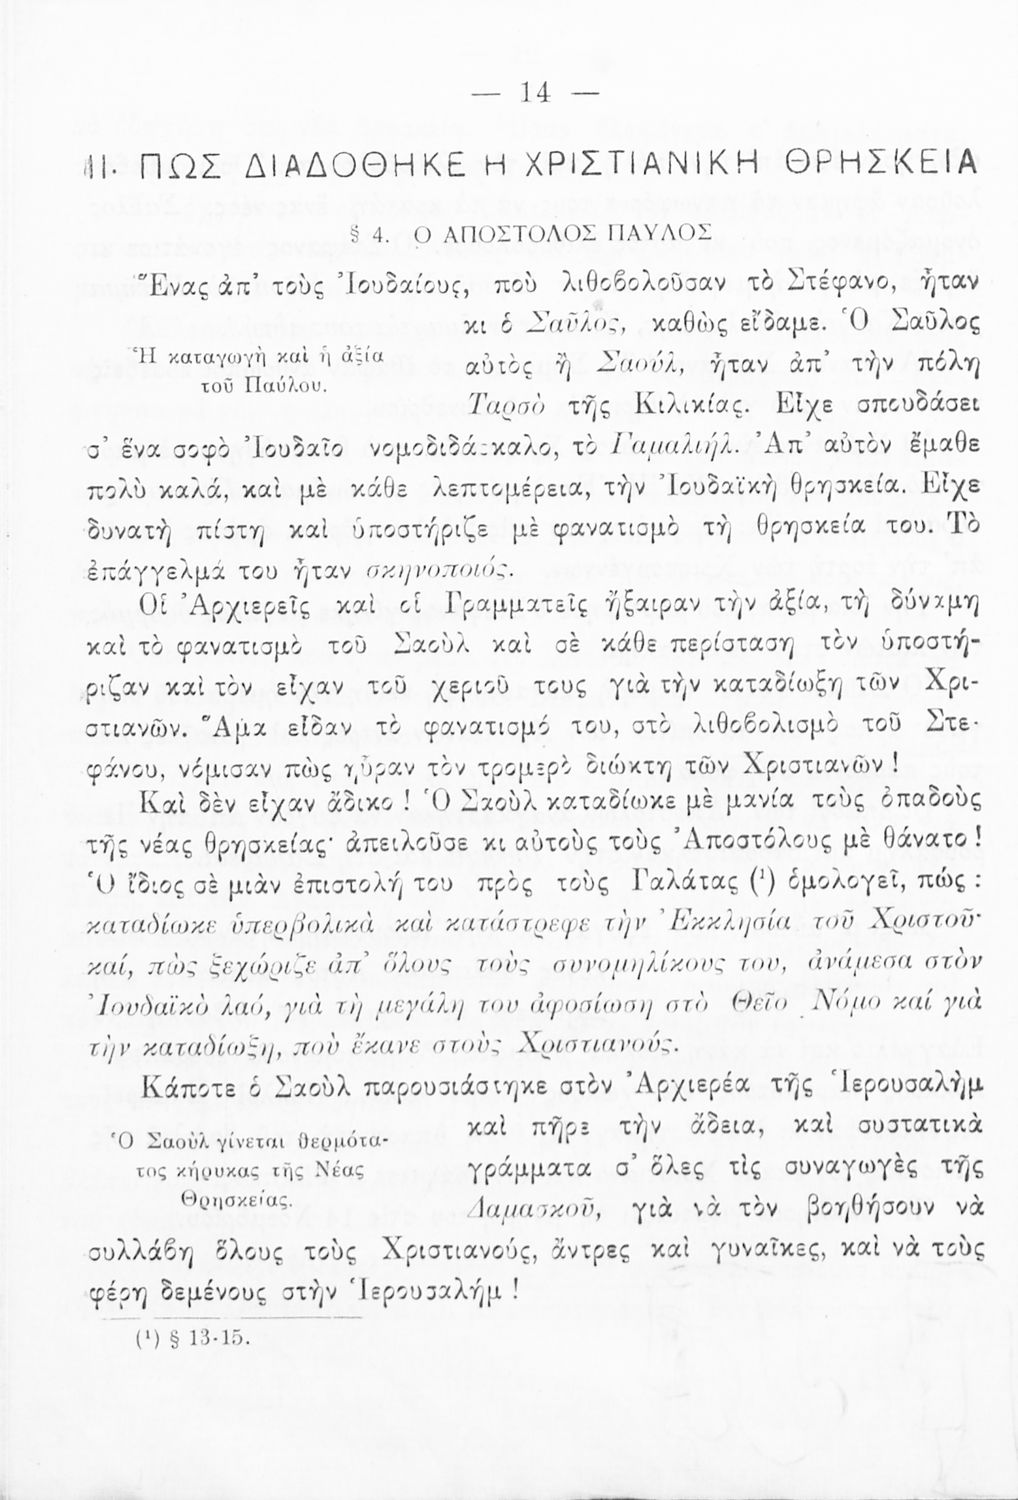 — 14 —
III. ΠΩΣ ΔΙΑΔΟΘΗΚΕ Η ΧΡΙΣΤΙΑΝΙΚΗ ΘΡΗΣΚΕΙΑ
§ 4. Ο ΑΠΟΣΤΟΛΟΣ ΠΑΥΛΟΣ
Ἕνας ἀπ’ τοὺς Ἰουδαίους, ποὺ λιθοβολοῦσαν τὸ Στέφανο, ἦταν
κι ὁ Σαῦλος, καθὼς εἴδαμε. Ὁ Σαῦλος
Ἡ καταγωγὴ καὶ ἡ ἀξία
τοῦ Παύλου.
αὐτὸς ἢ Σαούλ, ἦταν ἀπ’ τὴν πόλη
Ταρσὸ τῆς Κιλικίας. Εἶχε σπουδάσει
σ’ ἕνα σοφὸ Ἰουδαῖο νομοδιδάσκαλο, τὸ Γαμαλιήλ. Ἀπ’ αὐτὸν ἔμαθε
πολὺ καλά, καὶ μὲ κάθε λεπτομέρεια, τὴν Ἰουδαϊκὴ θρησκεία. Εἶχε
δυνατὴ πίστη καὶ ὑποστήριζε μὲ φανατισμὸ τὴ θρησκεία του. Τὸ
ἐπάγγελμά του ἦταν σκηνοποιός.
Οἱ Ἀρχιερεῖς καὶ οἱ Γραμματεῖς ἤξαιραν τὴν ἀξία, τὴ δύναμη
καὶ τὸ φανατισμὸ τοῦ Σαοὺλ καὶ σὲ κάθε περίσταση τὸν ὑποστή-
ριζαν καὶ τὸν εἶχαν τοῦ χεριοῦ τους γιὰ τὴν καταδίωξη τῶν Χρι-
στιανῶν. Ἅμα εἶδαν τὸ φανατισμό του, στὸ λιθοβολισμὸ τοῦ Στε-
φάνου, νόμισαν πὼς ηὗραν τὸν τρομερὸ διώκτη τῶν Χριστιανῶν !
Καὶ δὲν εἶχαν ἄδικο ! Ὁ Σαοὺλ καταδίωκε μὲ μανία τοὺς ὀπαδοὺς
τῆς νέας θρησκείας· ἀπειλοῦσε κι αὐτοὺς τοὺς Ἀποστόλους μὲ θάνατο !
Ὁ ἴδιος σὲ μιὰν ἐπιστολή του πρὸς τοὺς Γαλάτας (¹) ὁμολογεῖ, πώς :
καταδίωκε ὑπερβολικὰ καὶ κατάστρεφε τὴν Ἐκκλησία τοῦ Χριστοῦ·
καί, πὼς ξεχώριζε ἀπ’ ὅλους τοὺς συνομηλίκους του, ἀνάμεσα στὸν
Ἰουδαϊκὸ λαό, γιὰ τὴ μεγάλη του ἀφοσίωση στὸ Θεῖο Νόμο καί γιὰ
τὴν καταδίωξη, ποὺ ἔκανε στοὺς Χριστιανούς.
Κάποτε ὁ Σαοὺλ παρουσιάστηκε στὸν Ἀρχιερέα τῆς Ἱερουσαλὴμ
καὶ πῆρε τὴν ἄδεια, καὶ συστατικὰ
Ὁ Σαοὺλ γίνεται θερμότα-
τος κήρυκας τῆς Νέας
Θρησκείας.
γράμματα σ’ ὅλες τὶς συναγωγὲς τῆς
Δαμασκοῦ, γιὰ νὰ τὸν βοηθήσουν νὰ
συλλάβη ὅλους τοὺς Χριστιανούς, ἄντρες καὶ γυναῖκες, καὶ νὰ τοὺς
φέρη δεμένους στὴν Ἱερουσαλήμ !
(¹) § 13-15.